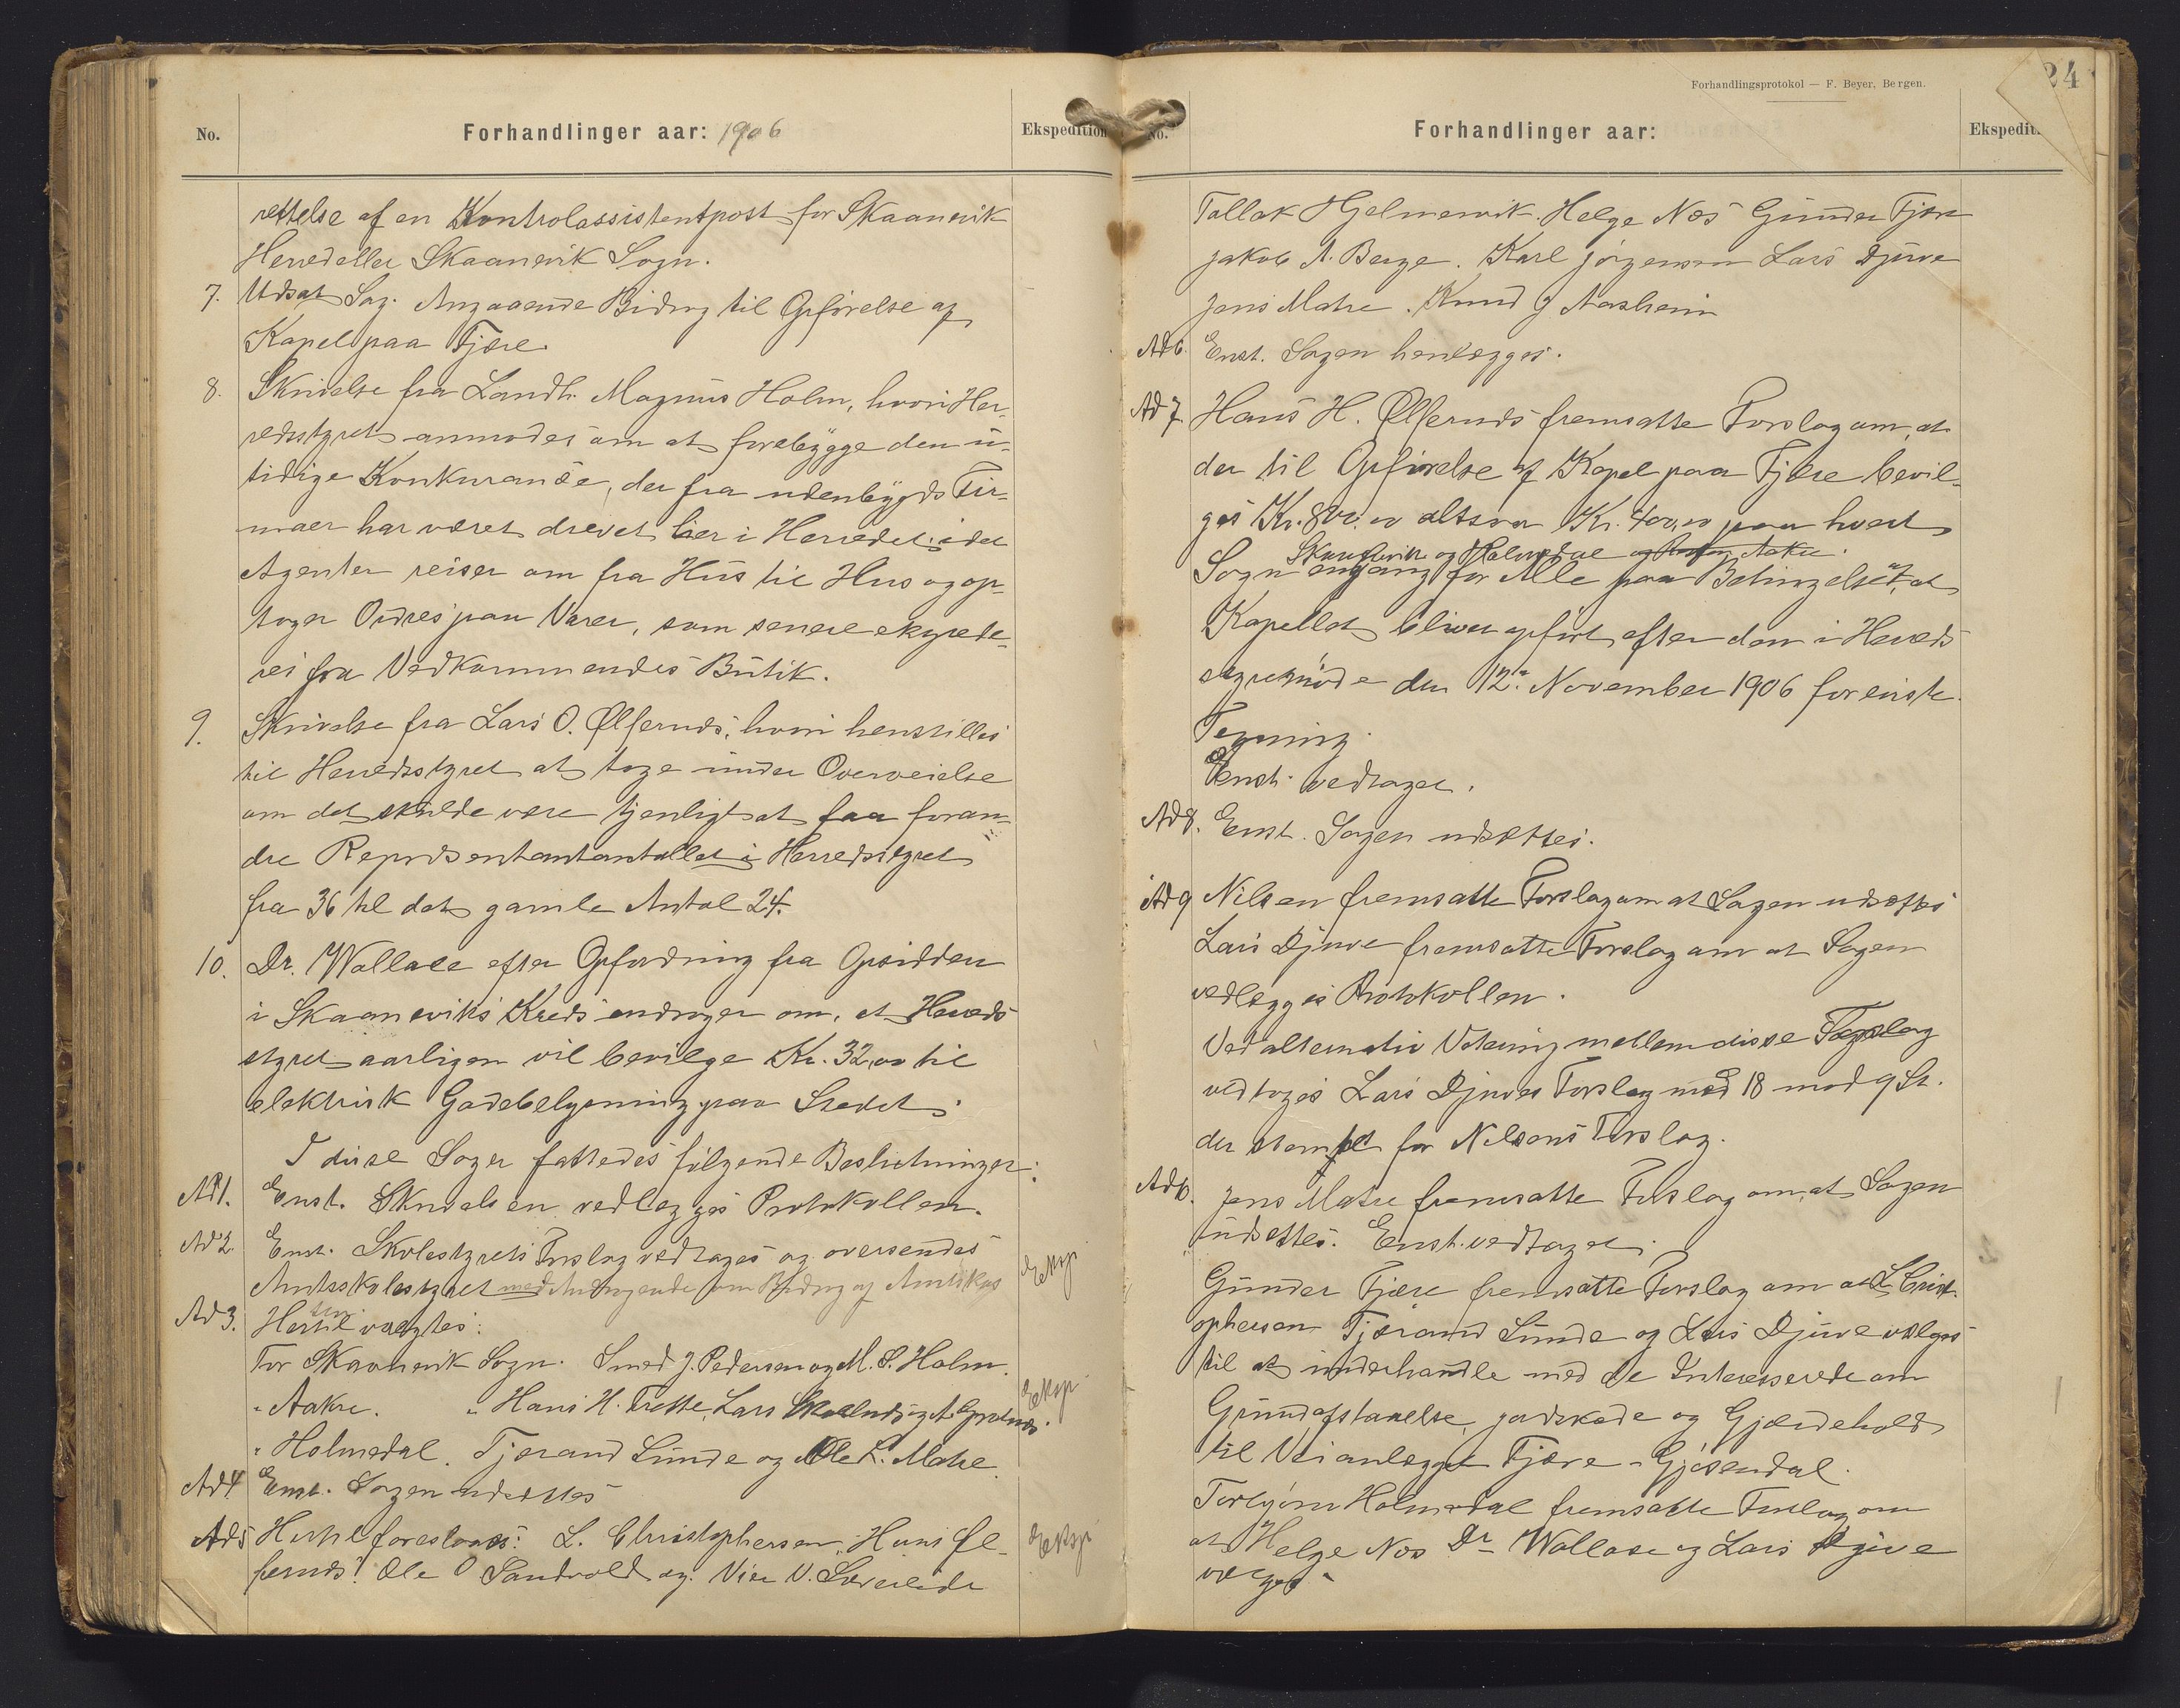 No.
Forhandlinger aar: 1906
Ekspedition
rettelse af en Kontrolassistentpost for Skaanevik
Herred eller Skaanevik Sogn.
7. Udsat Sag. Angaaende Bidrag til Opförelse af
Kapel paa Fjære.
8. Skrivelse fra Landh. Magnus Holm, hvori Her-
redsstyret anmodes om at forebygge den u-
tidige Konkuranse, der fra udenbygds Fir-
maer har været drevet her i Herredet idet
Agenter reiser om fra Hus til Hus og op-
tager Ordres paa Varer, som senere ekspede-
res fra Vedkommendes Butik.
9. Skrivelse fra Lars O. Ølfernæs, hvori henstilles
til Herredsstyret at tage under Overveielse
om det skulde være tjenligt at faa foran-
dre Repræsentantantallet i Herredsstyret
fra 36 til det gamle Antal 24.
10. Dr. Wallace efter Opfordring fra Opsidden
i Skaaneviks Kreds andrager om, at Herreds
styret aarligen vil bevilge Kr. 32,00 til
elektrisk Gadebelysning paa Stedet.
I disse Sager fattedes følgende Beslutninger:
Ad 1. Enst. Skrivelsen vedlægges Protokollen.
Ad 2. Enst. Skolestyrets Forslag vedtages og oversendes
Amtsskolestyret med Andragende om Bidrag af Amtskas
Eksp.
Ad 3. Hertil valgtes:
For Skaanevik Sogn. Smed J. Pedersen og M. S. Holm.
" Aakre. " Hans H. Tratte, Lars og A. Grotnæs.
Eksp.
" Holmedal. Tjerand Sunde og Ole L. Matre.
Ad 4 Enst. Sagen udsættes
Ad 5 Hertil foresloges: L. Christophersen, Hans Øl-
fernæs, Ole O Sandvold og Vier V. Sævereide
Eksp.
Forhandlingsprotokol — F. Beyer, Bergen.
24
No.
Forhandlinger aar:
Ekspedit
Tollak Hjelmervik. Helge Næs Gunder Fjære
Jakob A. Berge. Karl Jörgensen Lars Djuve
Jens Matre. Knud J Aasheim
Ad 6. Enst. Sagen henlægges.
Ad 7. Hans H. Ølfernæs fremsatte Forslag om, at
der til Opförelse af Kapel paa Fjære bevil-
ges Kr. 800,00 altsaa Kr. 400,00 paa hvert
Skaanevik og Holmedal Aakre.
Sogn engang for Alle paa Betingelse, at
Kapellet bliver opført efter den i Herreds
styremöde den 12te November 1906 foreviste
Tegning.
Enst. vedtaget.
Ad 8. Enst. Sagen udsættes.
Ad 9 Nilsen fremsatte Forslag om at Sagen udsættes
Lars Djuve fremsatte Forslag om at Sagen
vedlægges Protokollen.
Ved alternativ Votering mellem disse Forslag
vedtoges Lars Djuves Forslag med 18 mod 9 St.
der stemte for Nilsens Forslag.
Ad 10. Jens Matre fremsatte Forslag om, at Sagen
udsættes. Enst. vedtaget.
Gunder Fjære fremsatte Forslag om at L. Crist-
ophersen Tjerand Sunde og Lars Djuve vælges
til at underhandle med de Interesserede om
Grundafstaaelse, Jordskade og Gjærdehold
til Veianlægget Fjære-Gjösendal.
Torbjörn Holmedal fremsatte Forslag om
at Helge Næs Dr Wallace og Lars Djuve
vælges